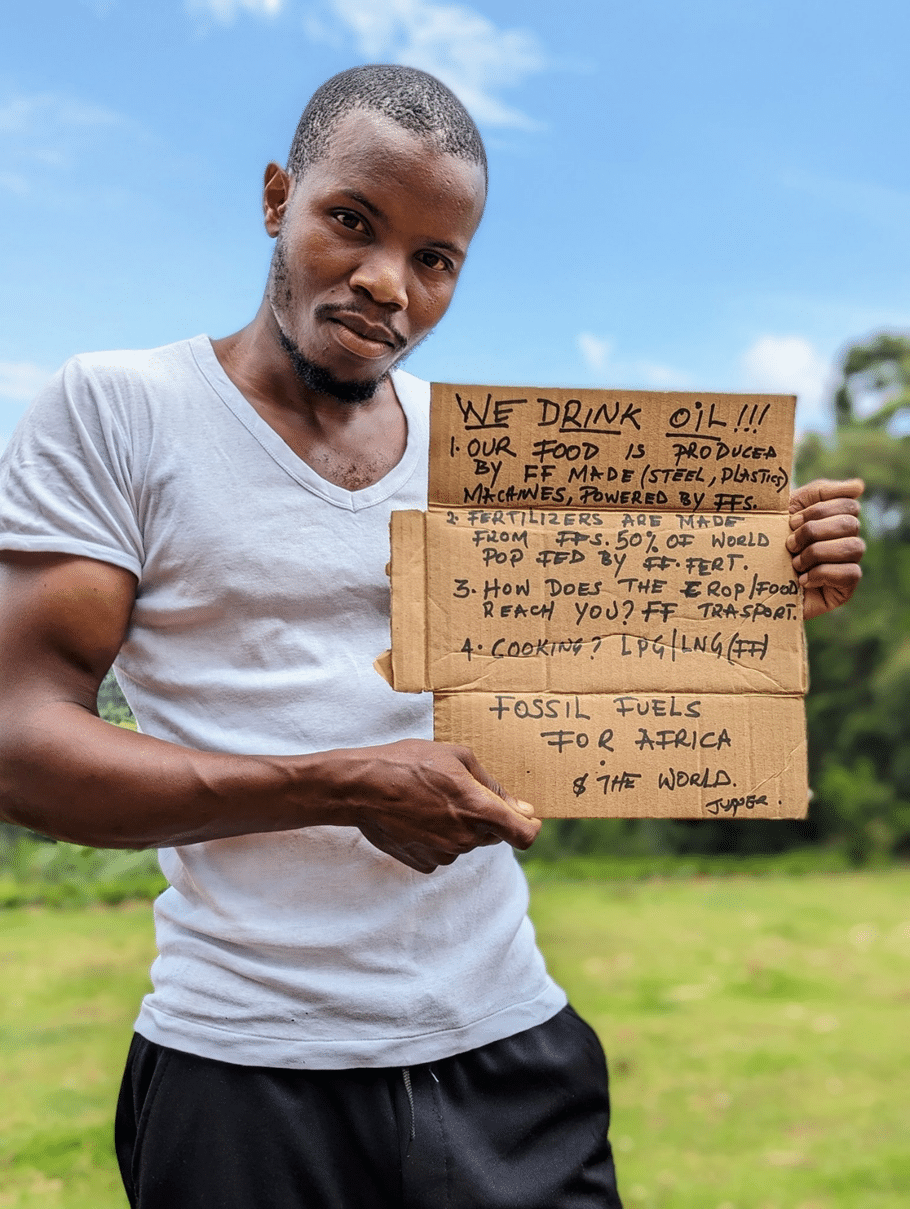 WE DRINK OIL!!!
1. OUR FOOD IS PRODUCED
BY FF MADE (STEEL, PLASTICS)
MACHINES, POWERED BY FFS.
2. FERTILIZERS ARE MADE
FROM FFS. 50% OF WORLD
POP FED BY FF. FERT.
3. HOW DOES THE CROP/FOOD
REACH YOU? FF TRASPORT.
4. COOKING? LPG/LNG(FF)
FOSSIL FUELS
FOR AFRICA
& THE WORLD.